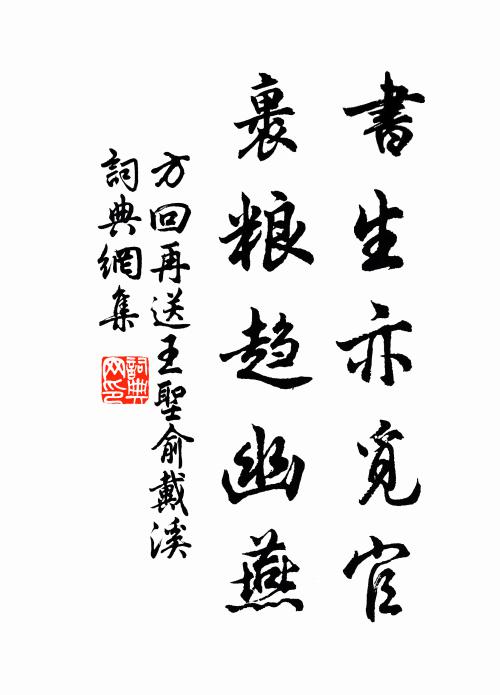 書生亦覓官
裹粮趋幽燕
方回再送王聖俞戴溪
詞典網集
詞典網印